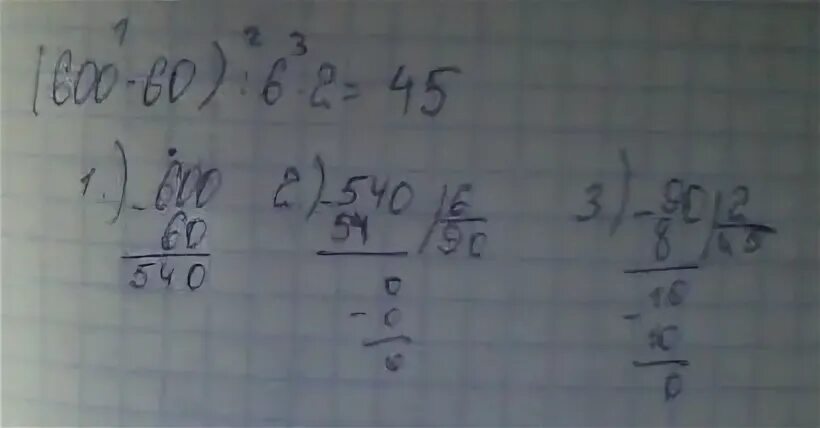 1 2 3
(600-60):6:2= 45
1.) -600
60
540
2) -540 | 6
54 | 90
0
-0
0
3) -90 | 2
8 | 45
10
-10
0